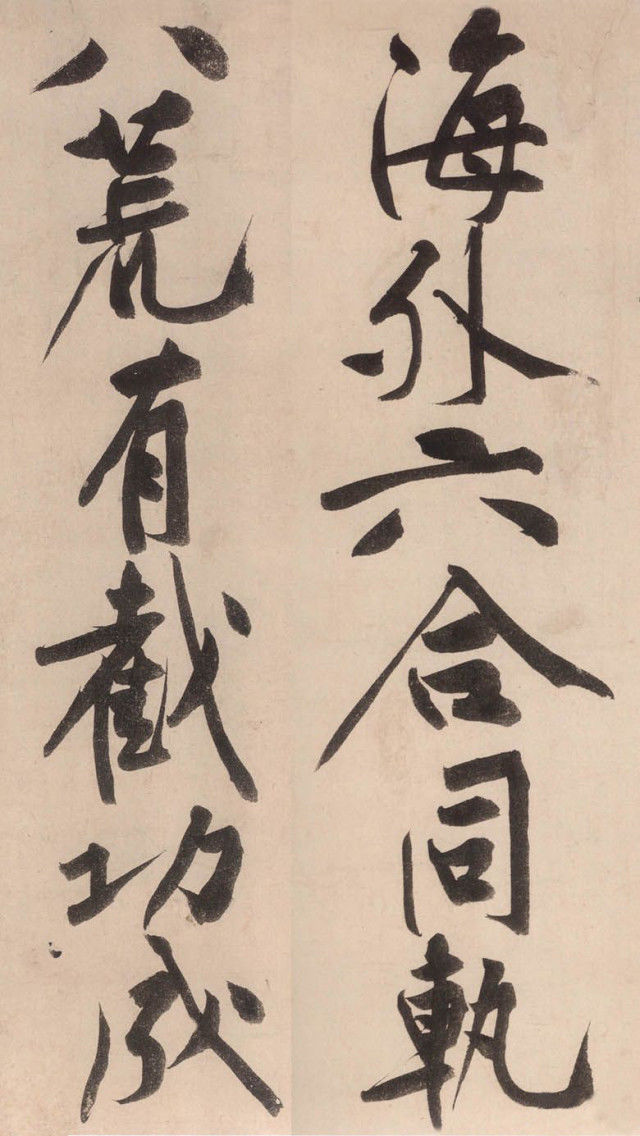 海外六合同軌
八荒有截功成